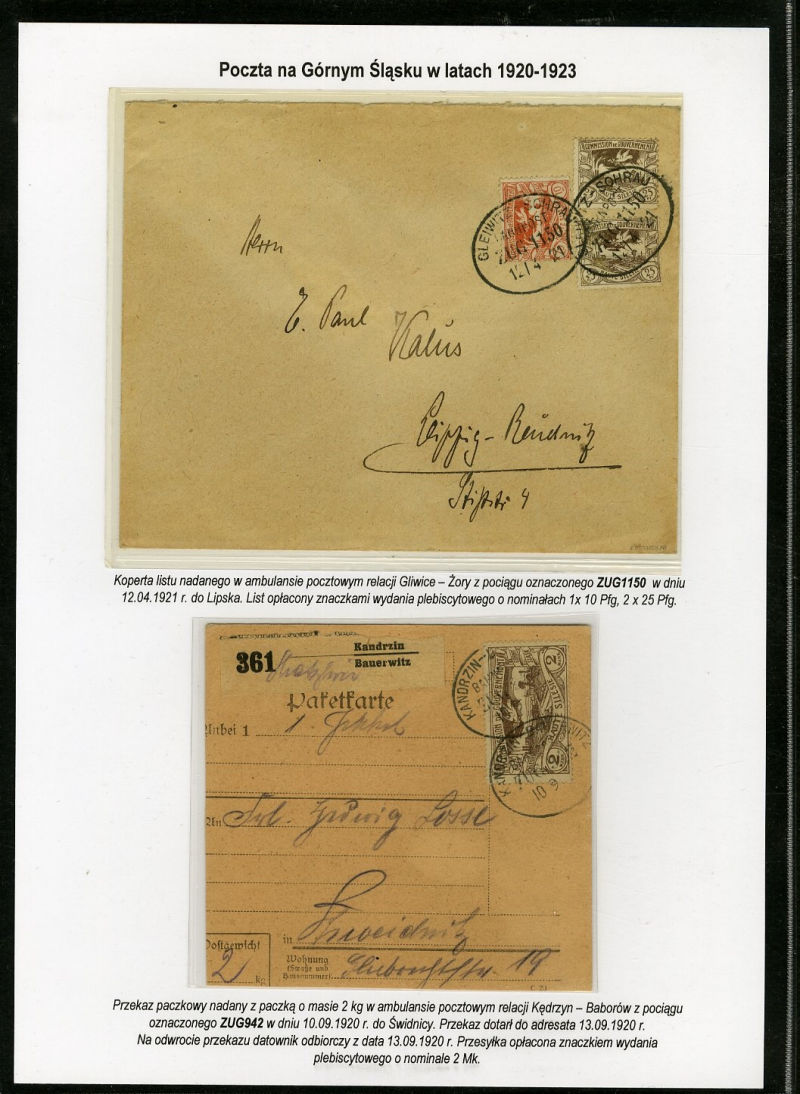 Poczta na Górnym Śląsku w latach 1920-1923
COMMISSION DE GOUVERNEMENT
GLEIWITZ-SCHRAU
BAHNPOST
ZUG 1150
12.4.21
Z-SCHRAU
ZUG 1150
12.4.21
25
25
Herrn
E. Paul Kalus
Leipzig-Reudnitz
Stiftstr 4
Koperta listu nadanego w ambulansie pocztowym relacji Gliwice – Żory z pociągu oznaczonego ZUG1150 w dniu
12.04.1921 r. do Lipska. List opłacony znaczkami wydania plebiscytowego o nominałach 1x 10 Pfg, 2 x 25 Pfg.
361
Kandrzin
Bauerwitz
Paketkarte
KANDRZIN-
2
2
KANDR
WITZ
10 9
Anbei 1
An Frl. Hedwig Losse
in Schweidnitz
Postgewicht
2 kg
Wohnung
(Straße und
Hausnummer)
19
C 21
Przekaz paczkowy nadany z paczką o masie 2 kg w ambulansie pocztowym relacji Kędrzyn – Baborów z pociągu
oznaczonego ZUG942 w dniu 10.09.1920 r. do Świdnicy. Przekaz dotarł do adresata 13.09.1920 r.
Na odwrocie przekazu datownik odbiorczy z data 13.09.1920 r. Przesyłka opłacona znaczkiem wydania
plebiscytowego o nominale 2 Mk.